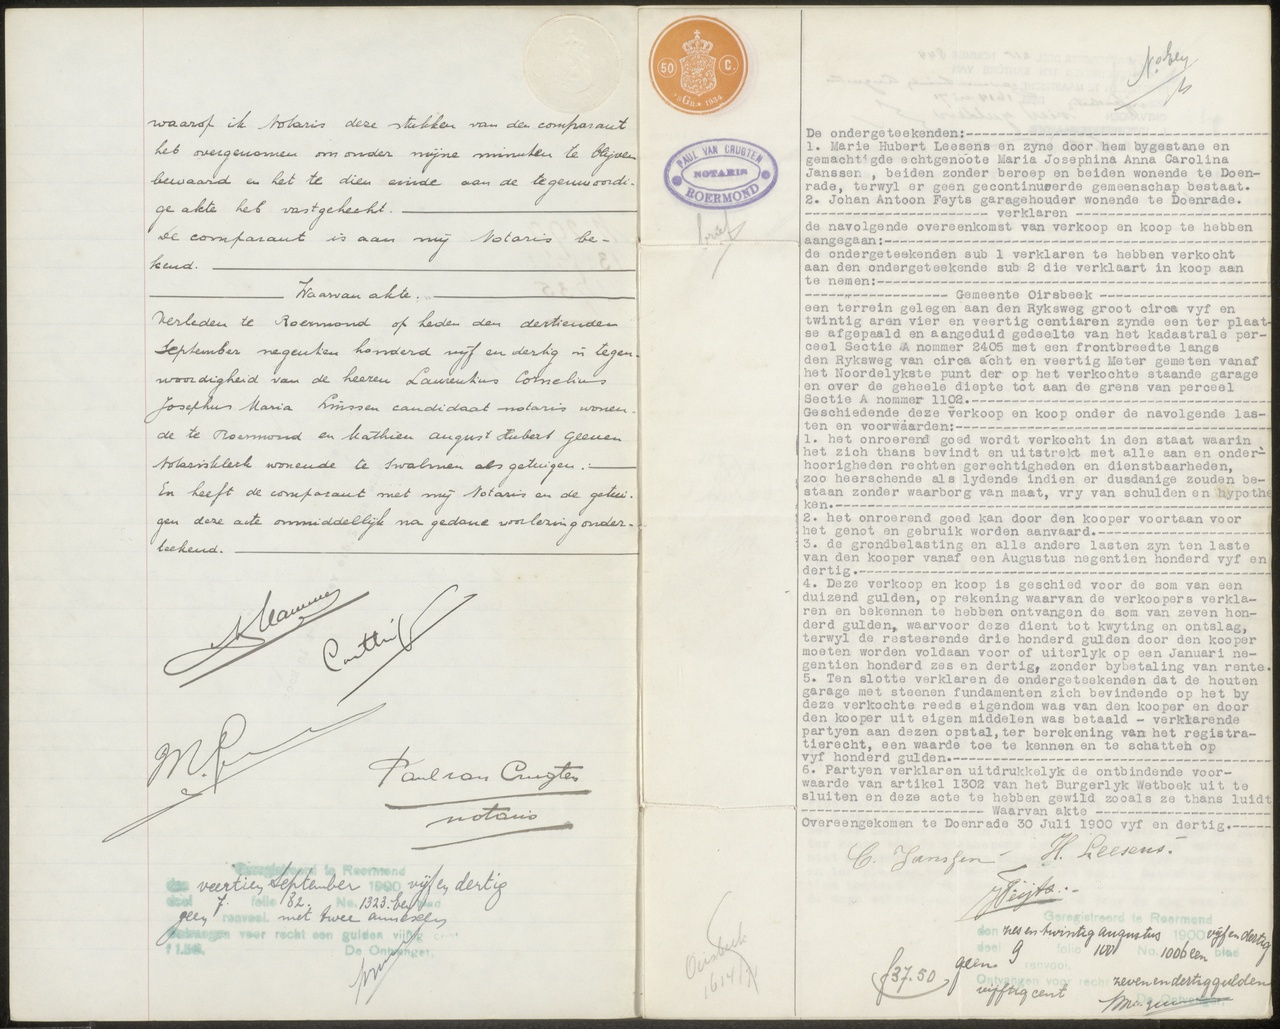 waarop ik Notaris deze stukken van den comparant
heb overgenomen om onder mijne minuten te blijven
bewaard en heb te dien einde aan de tegenwoordi-
ge akte heb vastgehecht.
De comparant is aan mij Notaris be-
kend.
Waarvan akte.
Verleden te Roermond op heden den dertienden
September negentien honderd vijf en dertig in tegen-
woordigheid van de heeren Laurentius Cornelius
Josephus Maria Linssen candidaat notaris wonen-
de te Roermond en Mathieu August Hubert Geenen
Notarisklerk wonende te Swalmen als getuigen.
En heeft de comparant met mij Notaris en de getui-
gen deze acte onmiddellijk na gedane voorlezing onder-
teekend.
Paul van Crugten
notaris
Geregistreerd te Roermond
den veertien September 1900 vijf en dertig
deel 7. folio 82. No. 1323. een blad
geen renvooi. met twee annexen
Ontvangen voor recht een gulden vijftig cent
f 1.50. De Ontvanger,
50 C.
1934
PAUL VAN CRUGTEN
NOTARIS
ROERMOND
Oirsbeek
De ondergeteekenden:
1. Marie Hubert Leesens en zyne door hem bygestane en
gemachtigde echtgenoote Maria Josephina Anna Carolina
Janssen , beiden zonder beroep en beiden wonende te Doen-
rade, terwyl er geen gecontinueerde gemeenschap bestaat.
2. Johan Antoon Feyts garagehouder wonende te Doenrade.
verklaren
de navolgende overeenkomst van verkoop en koop te hebben
aangegaan:
de ondergeteekenden sub 1 verklaren te hebben verkocht
aan den ondergeteekende sub 2 die verklaart in koop aan
te nemen:
Gemeente Oirsbeek
een terrein gelegen aan den Ryksweg groot circa vyf en
twintig aren vier en veertig centiaren zynde een ter plaat-
se afgepaald en aangeduid gedeelte van het kadastrale per-
ceel Sectie A nommer 2405 met een frontbreedte langs
den Ryksweg van circa acht en veertig Meter gemeten vanaf
het Noordelykste punt der op het verkochte staande garage
en over de geheele diepte tot aan de grens van perceel
Sectie A nommer 1102.
Geschiedende deze verkoop en koop onder de navolgende las-
ten en voorwaarden:
1. het onroerend goed wordt verkocht in den staat waarin
het zich thans bevindt en uitstrekt met alle aan en onder-
hoorigheden rechten gerechtigheden en dienstbaarheden,
zoo heerschende als lydende indien er dusdanige zouden be-
staan zonder waarborg van maat, vry van schulden en hypothe
ken.
2. het onroerend goed kan door den kooper voortaan voor
het genot en gebruik worden aanvaard.
3. de grondbelasting en alle andere lasten zyn ten laste
van den kooper vanaf een Augustus negentien honderd vyf en
dertig.
4. Deze verkoop en koop is geschied voor de som van een
duizend gulden, op rekening waarvan de verkoopers verkla-
ren en bekennen te hebben ontvangen de som van zeven hon-
derd gulden, waarvoor deze dient tot kwyting en ontslag,
terwyl de resteerende drie honderd gulden door den kooper
moeten worden voldaan voor of uiterlyk op een Januari ne-
gentien honderd zes en dertig, zonder bybetaling van rente.
5. Ten slotte verklaren de ondergeteekenden dat de houten
garage met steenen fundamenten zich bevindende op het by
deze verkochte reeds eigendom was van den kooper en door
den kooper uit eigen middelen was betaald - verklarende
partyen aan dezen opstal, ter berekening van het registra-
tierecht, een waarde toe te kennen en te schatten op
vyf honderd gulden.
6. Partyen verklaren uitdrukkelyk de ontbindende voor-
waarde van artikel 1302 van het Burgerlyk Wetboek uit te
sluiten en deze acte te hebben gewild zooals ze thans luidt
Waarvan akte
Overeengekomen te Doenrade 30 Juli 1900 vyf en dertig.
C. Janssen H. Leesens.
Feijts.
Geregistreerd te Roermond
den zes en twintig augustus 1900 vijf en dertig
deel 9 folio 100 No. 1006 een blad
geen renvooi.
Ontvangen voor recht zeven en dertig gulden
vijftig cent De Ontvanger,
f37.50